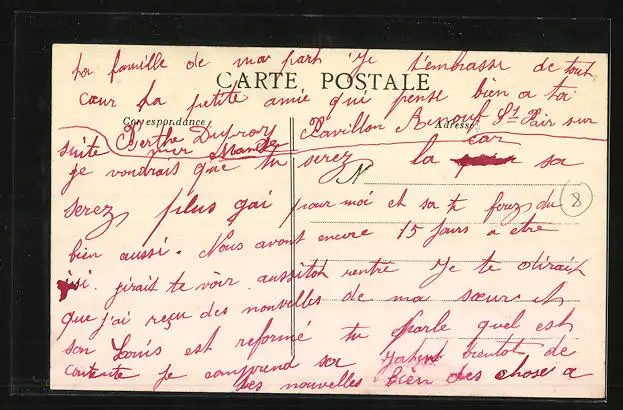 ta famille de ma part Je t'embrasse de tout
CARTE POSTALE
cœur ta petite amie qui pense bien a ta
Correspondance
Adresse
Berthe Dupray Pavillon Renouf St Pair sur
mer Manche
suite
car
je voudrais que tu serez la sa
serez plus gai pour moi et sa te feras du
8
bien aussi. Nous avont encore 15 jours a etre
isi. jirait te voir aussitot rentré Je te dirait
que j'ai reçu des nouvelles de ma sœurs et
son Louis est reformé tu parle quel est
contente Je comprend sa bientot de
tes nouvelles bien des chose a